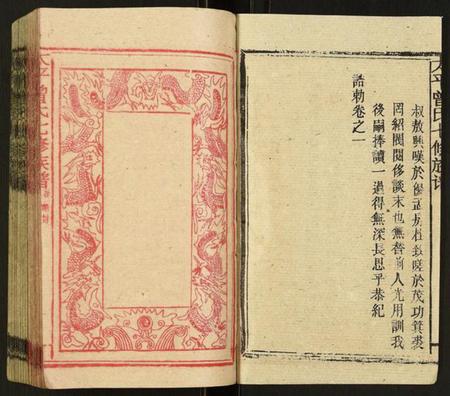 叔敖興嘆於優孟房杜致嘅於茂功箕裘
罔紹閥閱侈談末也無替前人光用訓我
後嗣捧讀一過得無深長思乎恭紀
誥勅卷之一
曾氏七修族譜
曾氏七修族譜